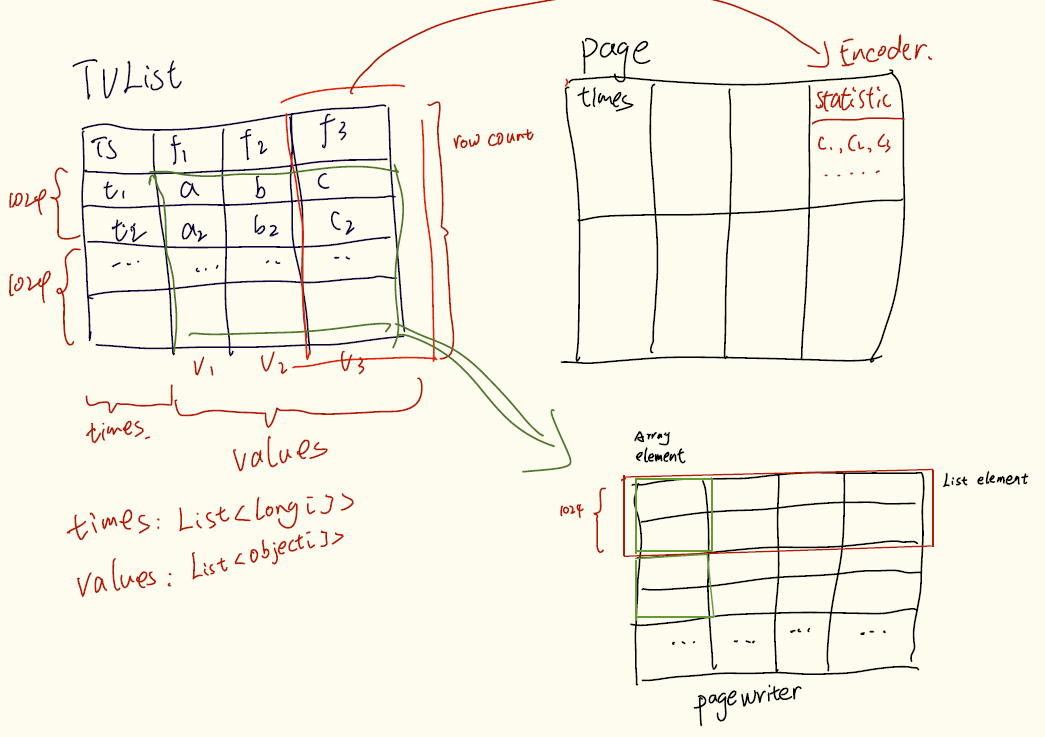 TVList
TS f1 f2 f3
t1 a b c
t2 a2 b2 c2
... ... .. ..
1024
1024
row count
V1 V2 V3
times.
values
times: List<long[]>
values: List<object[]>
page
Encoder.
times
statistic
c1, c2, c3
.....
Array
element
List element
1024
... ... ... ...
pagewriter